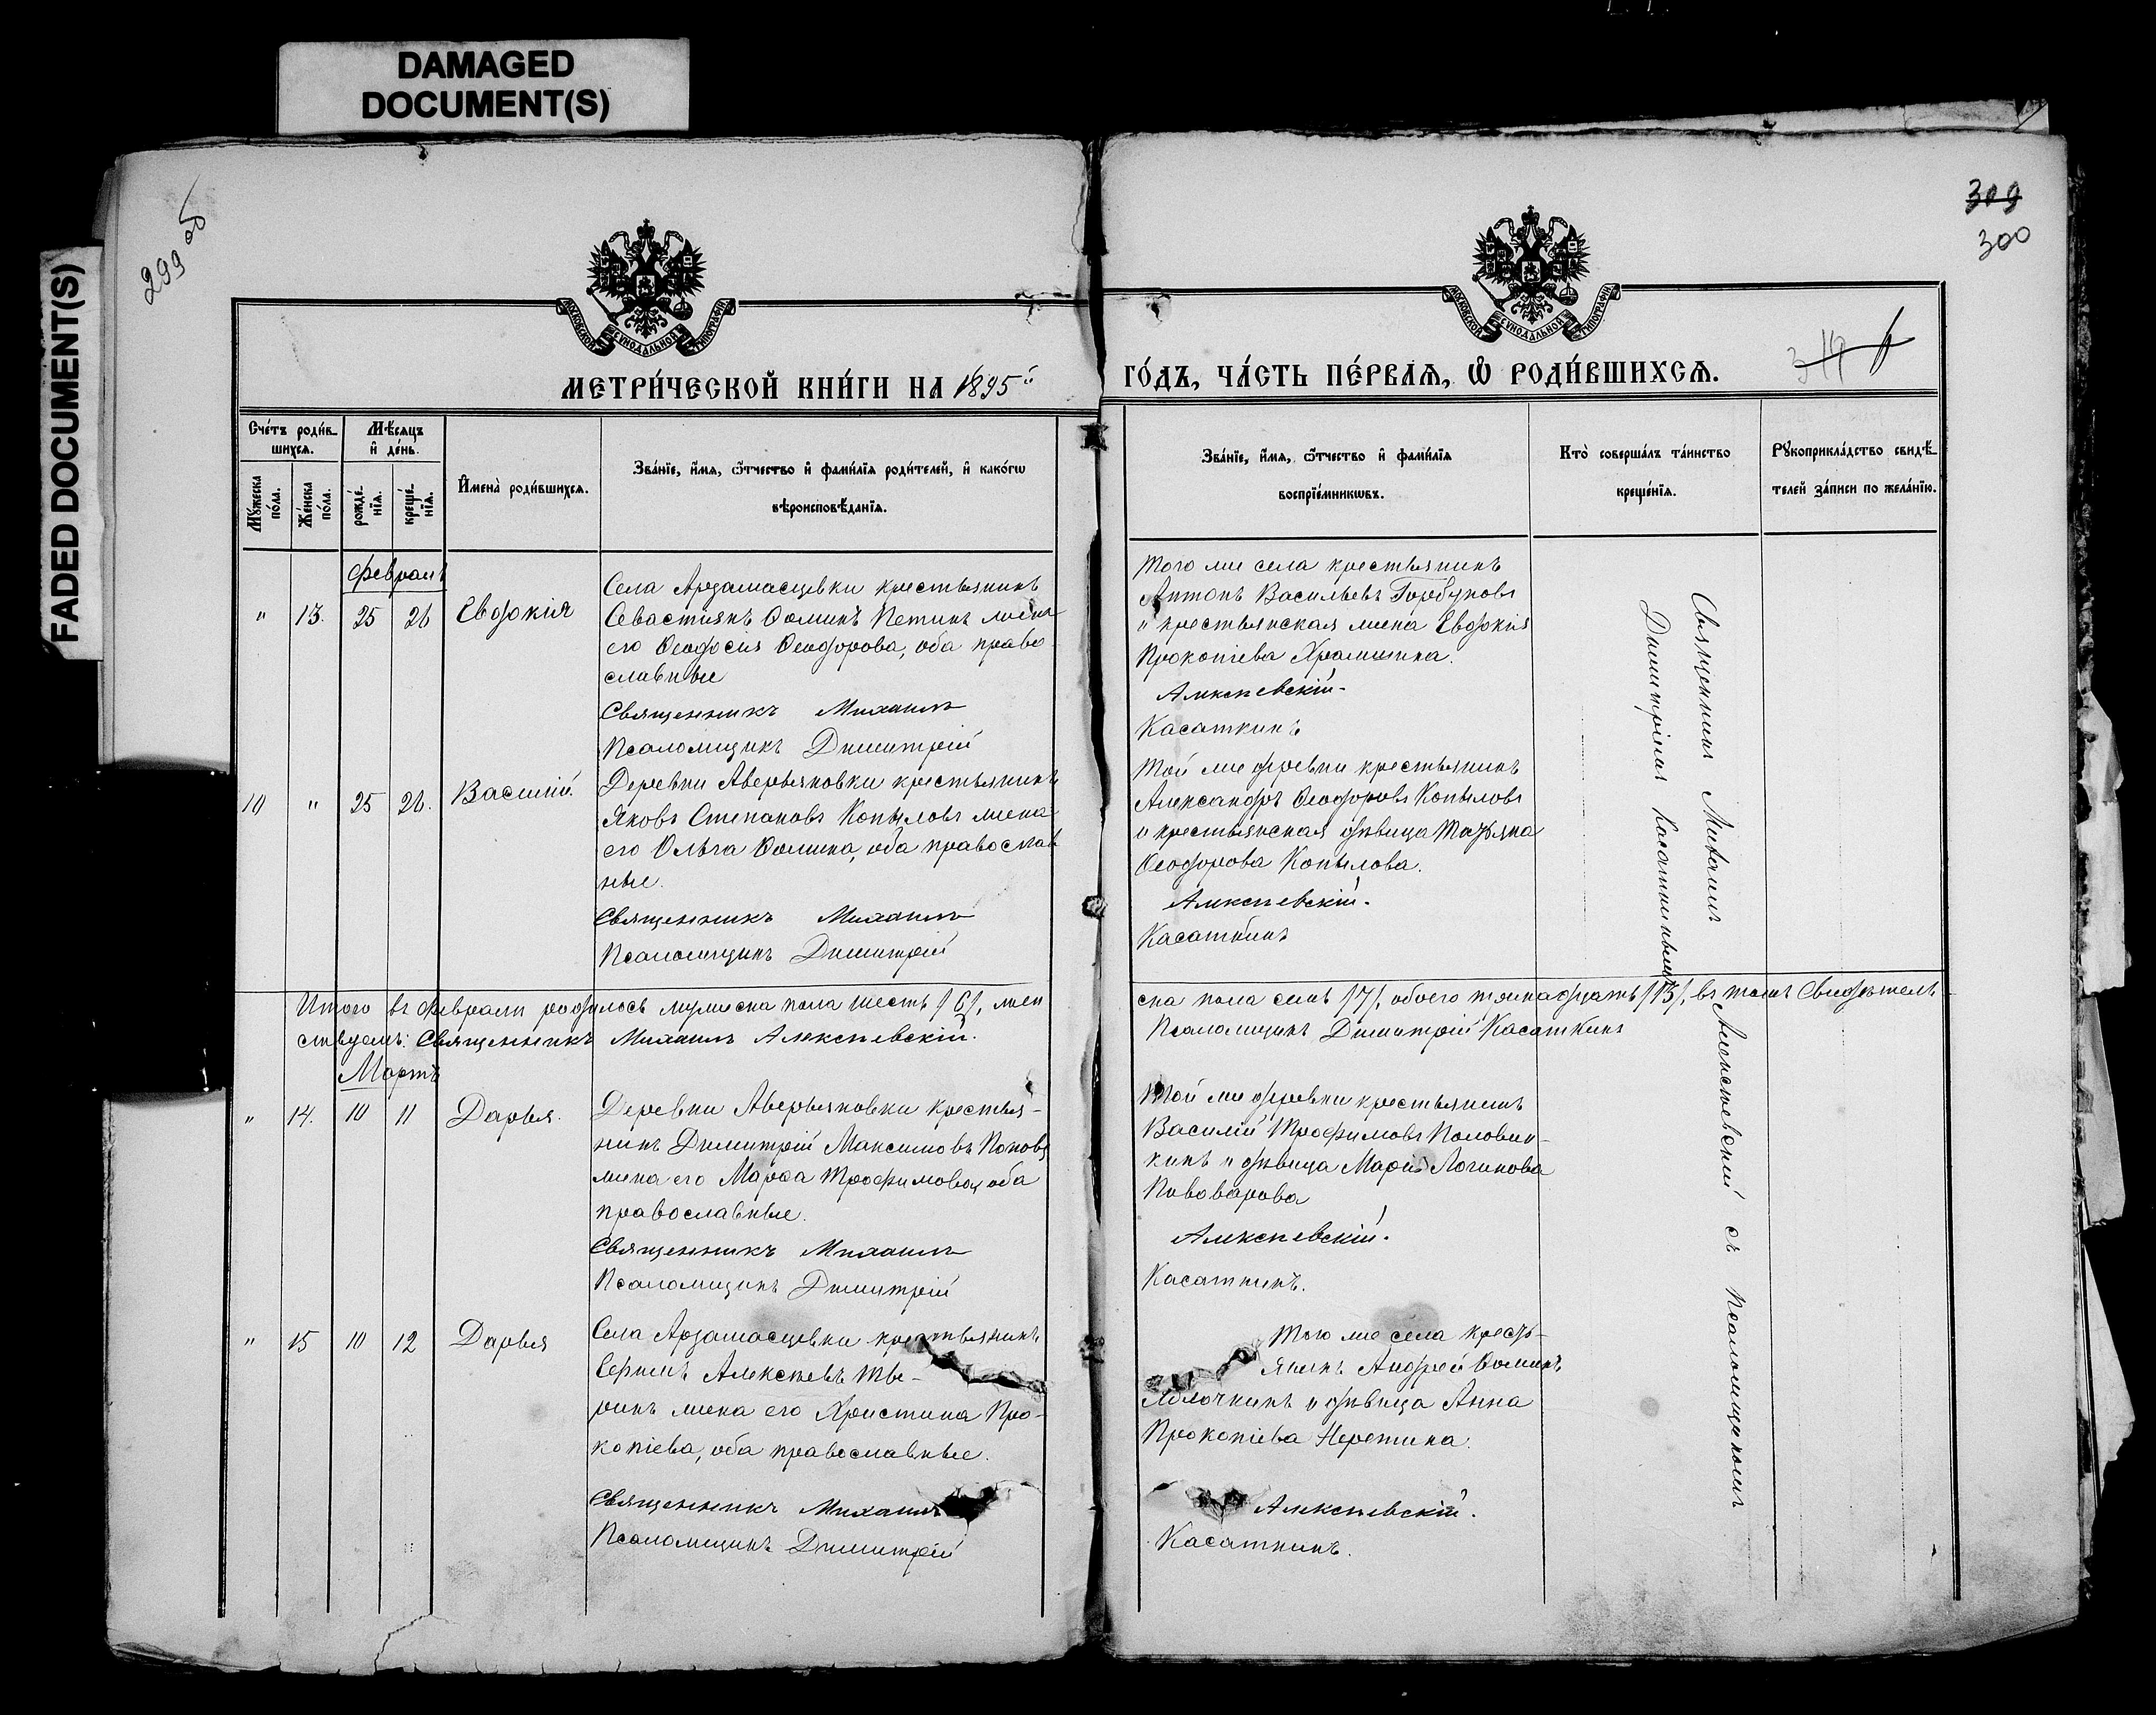 DAMAGED
DOCUMENT(S)
FADED DOCUMENT(S)
299 об
309
300
МОСКОВСКОЙ СУНОДАЛЬНОЙ ТИПОГРАФІИ
МОСКОВСКОЙ СУНОДАЛЬНОЙ ТИПОГРАФІИ
МЕТРИ́ЧЕСКОЙ КНИ́ГИ НА 1895й
ГО́ДЪ, ЧА́СТЬ ПЕ́РВАѦ, Ѽ РОДИ́ВШИХСѦ.
Сче́тъ роди́в-
шихсѧ.
Мꙋ́жеска по́ла.
Же́нска по́ла.
Мѣ́сѧцъ
и҆ де́нь.
рожде́-нїѧ.
креще́-нїѧ.
И҆мена̀ роди́вшихсѧ.
Зва́нїе, и҆́мѧ, ѻ҆́тчество и҆ фами́лїѧ роди́телей, и҆ како́гѡ
вѣроисповѣ́данїѧ.
Зва́нїе, и҆́мѧ, ѻ҆́тчество и҆ фами́лїѧ
воспрїе́мникѡвъ.
Кто̀ соверша́лъ та́инство
креще́нїѧ.
Рꙋкоприкла́дство свидѣ́-
телей за́писи по жела́нїю.
Февраль
" 13. 25 26 Евдокія
Села Арзамасцевки крестьянинъ
Севастіянъ Ѳоминъ Петинъ жена
его Ѳеодосія Ѳеодорова, оба право
славные
Священникъ Михаилъ
Псаломщикъ Димитрій
Того же села крестьянинъ
Антонъ Васильевъ Горбуновъ
и крестьянская жена Евдокія
Прокопіева Храмшина.
Алексѣевскій.
Касаткинъ
10 " 25 26. Василій.
Деревни Аверьяновки крестьянинъ
Яковъ Степановъ Копыловъ жена
его Ольга Ѳомина, оба православ
ные.
Священникъ Михаилъ
Псаломщикъ Димитрій
Той же деревни крестьянинъ
Александръ Ѳеодоровъ Копыловъ
и крестьянская дѣвица Татьяна
Ѳеодорова Копылова.
Алексѣевскій.
Касаткинъ
Итого въ Февралѣ родилось мужеска пола шесть /6/, жен
ска пола семь /7/, обоего тринадцать /13/, въ томъ Свидѣтель-
ствуемъ: Священникъ Михаилъ Алексѣевскій.
Псаломщикъ Димитрій Касаткинъ
Мартъ
" 14. 10 11 Дарья.
Деревни Аверьяновки крестья-
нинъ Димитрій Максимовъ Поповъ
жена его Марѳа Трофимова, оба
православные.
Священникъ Михаилъ
Псаломщикъ Димитрій
Той же деревни крестьянинъ
Василій Трофимовъ Половин-
кинъ и дѣвица Марія Логинова
Пивоварова
Алексѣевскій.
Касаткинъ.
" 15 10 12 Дарья
Села Арзамасцевки крестьянинъ
Сергій Алексѣевъ
жена его Христина Про-
копіева, оба православные.
Священникъ Михаилъ
Псаломщикъ Димитрій
Того же села кресть-
янинъ Андрей Ѳоминъ
Яблочкинъ и дѣвица Анна
Прокопіева Неретина.
Алексѣевскій.
Касаткинъ.
Священникъ Михаилъ Алексѣевскій съ псаломщикомъ
Димитріемъ Касаткинымъ